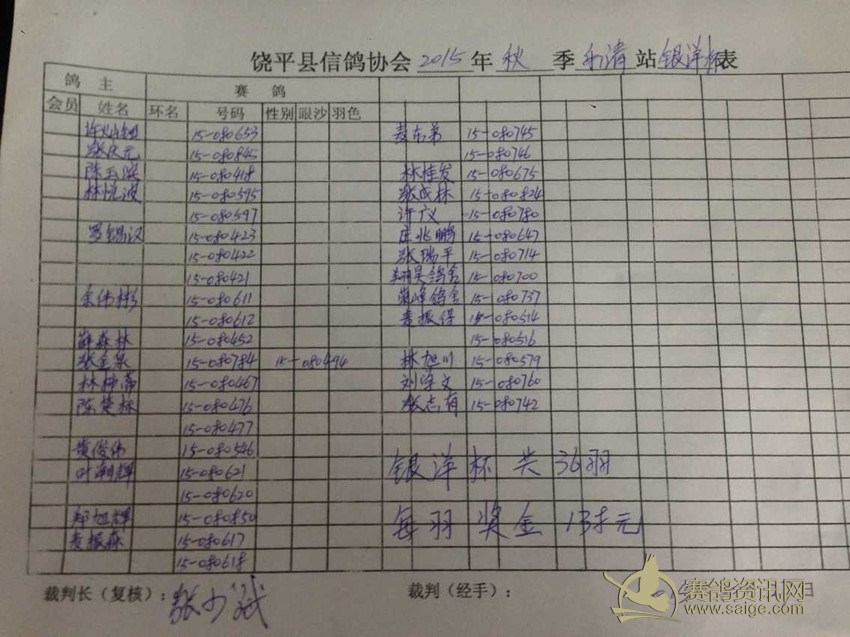 饶平县信鸽协会 2015 年 秋 季 乐清 站 银洋杯 表
鸽 主 赛 鸽
会员 姓名 环名 号码 性别 眼沙 羽色
15-080653 麦东弟 15-080745
张庆元 15-080845 15-080746
陈玉滨 15-080418 林桂发 15-080675
林悦波 15-080595 张成林 15-080824
15-080597 许广义 15-080780
罗锡汉 15-080423 庄兆鹏 15-080647
15-080422 张瑞平 15-080714
15-080421 翔昊鸽舍 15-080700
余伟彬 15-080611 岚峰鸽舍 15-080737
15-080612 麦振得 15-080514
薛森林 15-080452 15-080516
张金泉 15-080784 15-080494 林旭川 15-080579
林钟 15-080467 刘学文 15-080760
陈楚标 15-080476 张志有 15-080742
15-080477
黄俊伟 15-080546
叶潮辉 15-080621 银洋杯共36羽
15-080620
郑旭辉 15-080850 每羽奖金 元
麦振森 15-080617
15-080618
裁判长（复核）： 张少斌 裁判（经手）：
年 月 日
赛鸽资讯网
www.saige.com